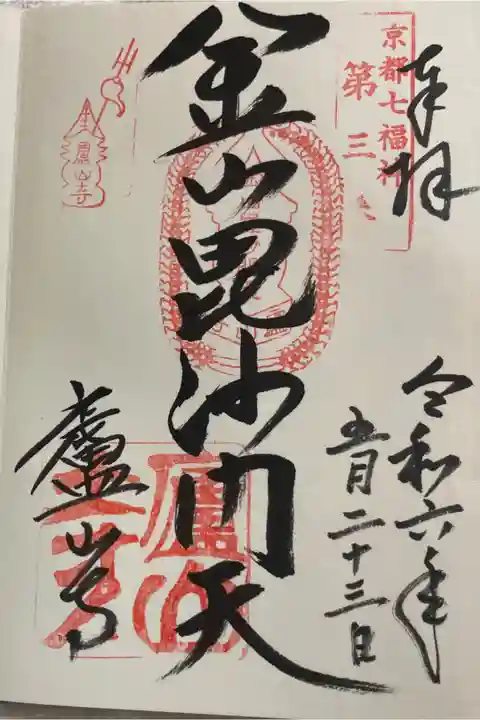 奉拝
京都七福神
第三
令和六年
五月二十三日
金山毘沙門天
廬山寺
廬山寺